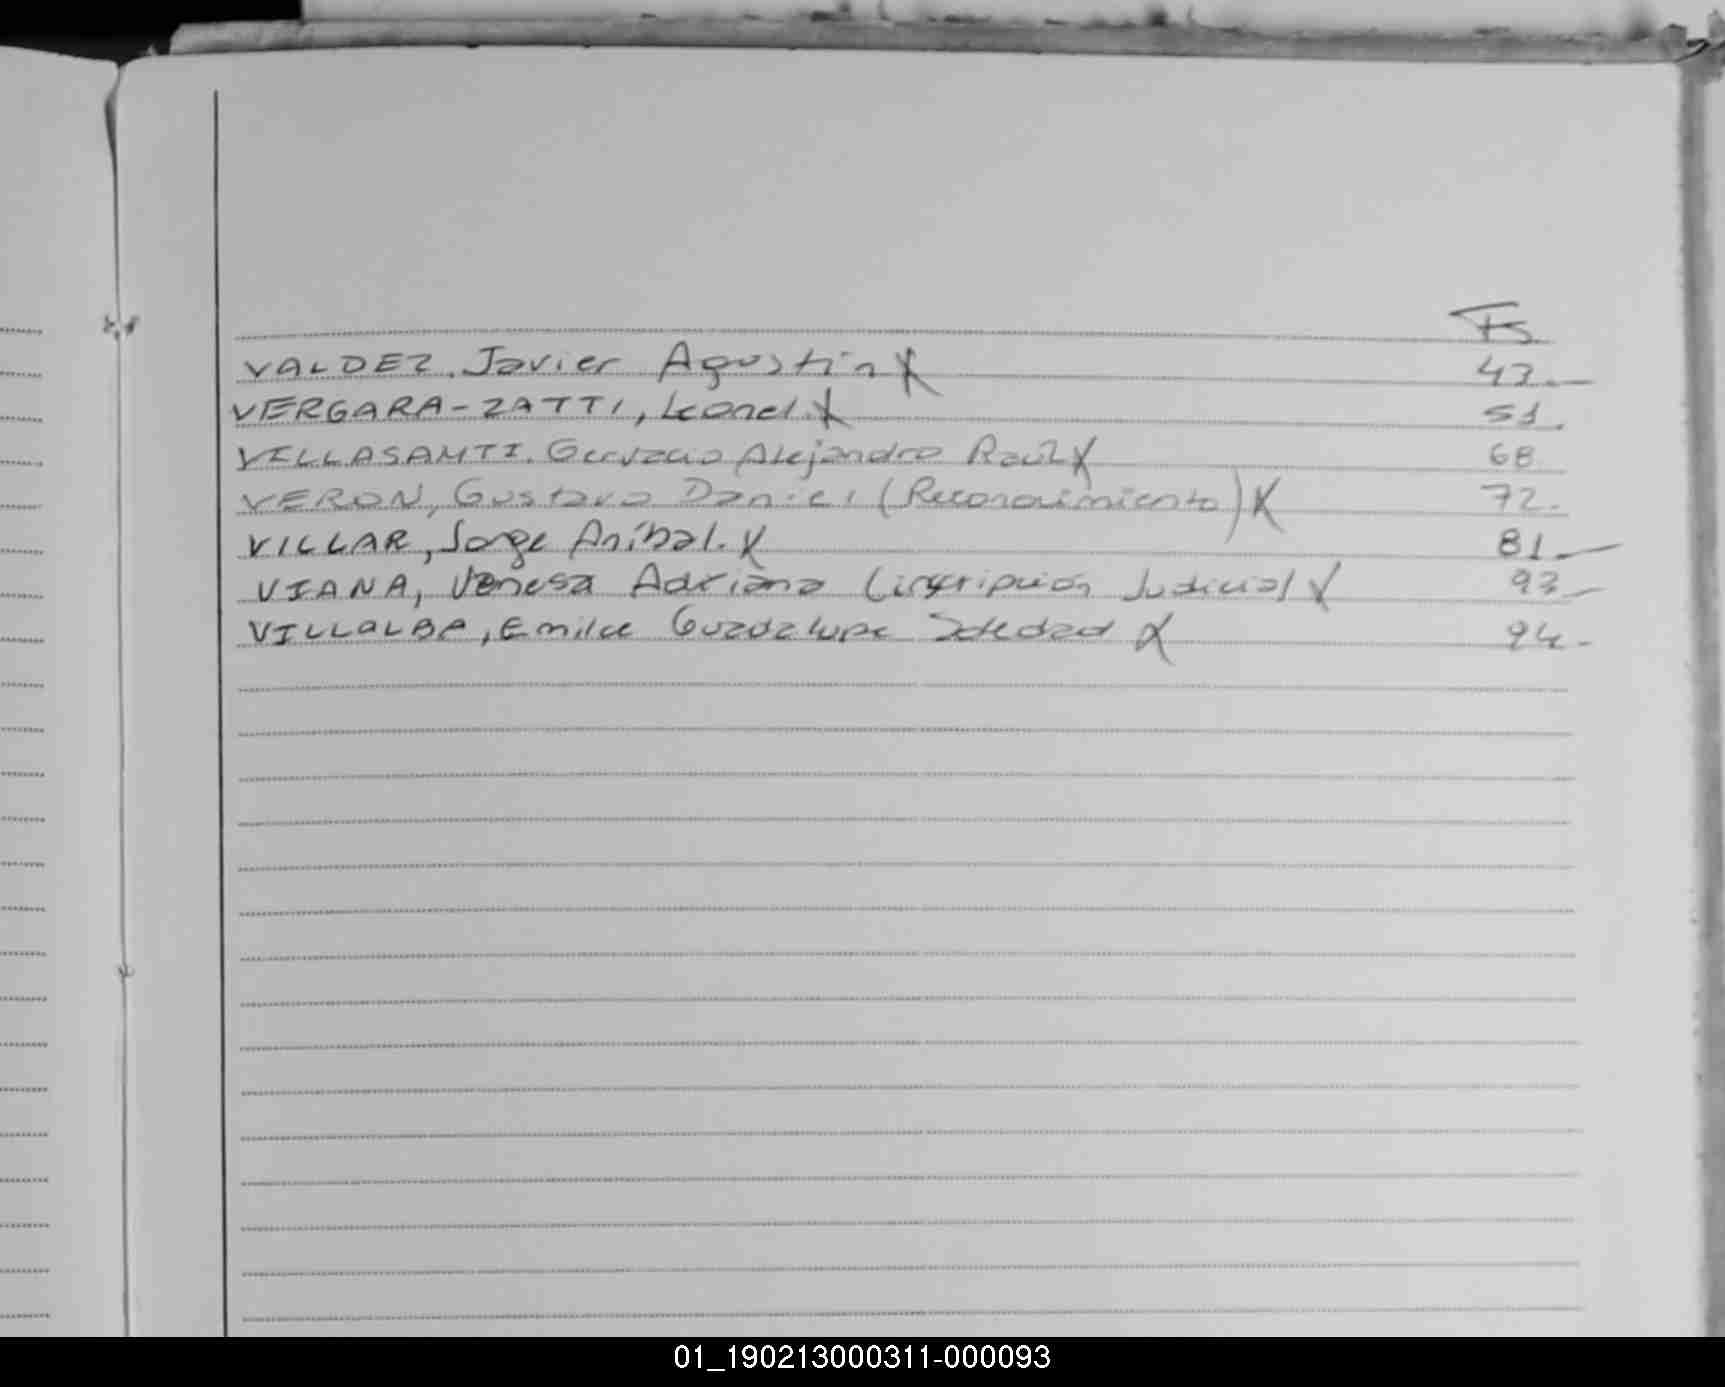 Fs
VALDEZ, Javier Agustín X 43.—
VERGARA-ZATTI, Leonel. X 51.
VILLASANTI, Gervacio Alejandro Raúl X 68
VERON, Gustavo Daniel (Reconocimiento) X 72.
VILLAR, Jorge Aníbal. X 81.—
VIANA, Vanesa Adriana (inscripción Judicial X 93.—
VILLALBA, Emilce Guadalupe Soledad X 94.-
01_190213000311-000093